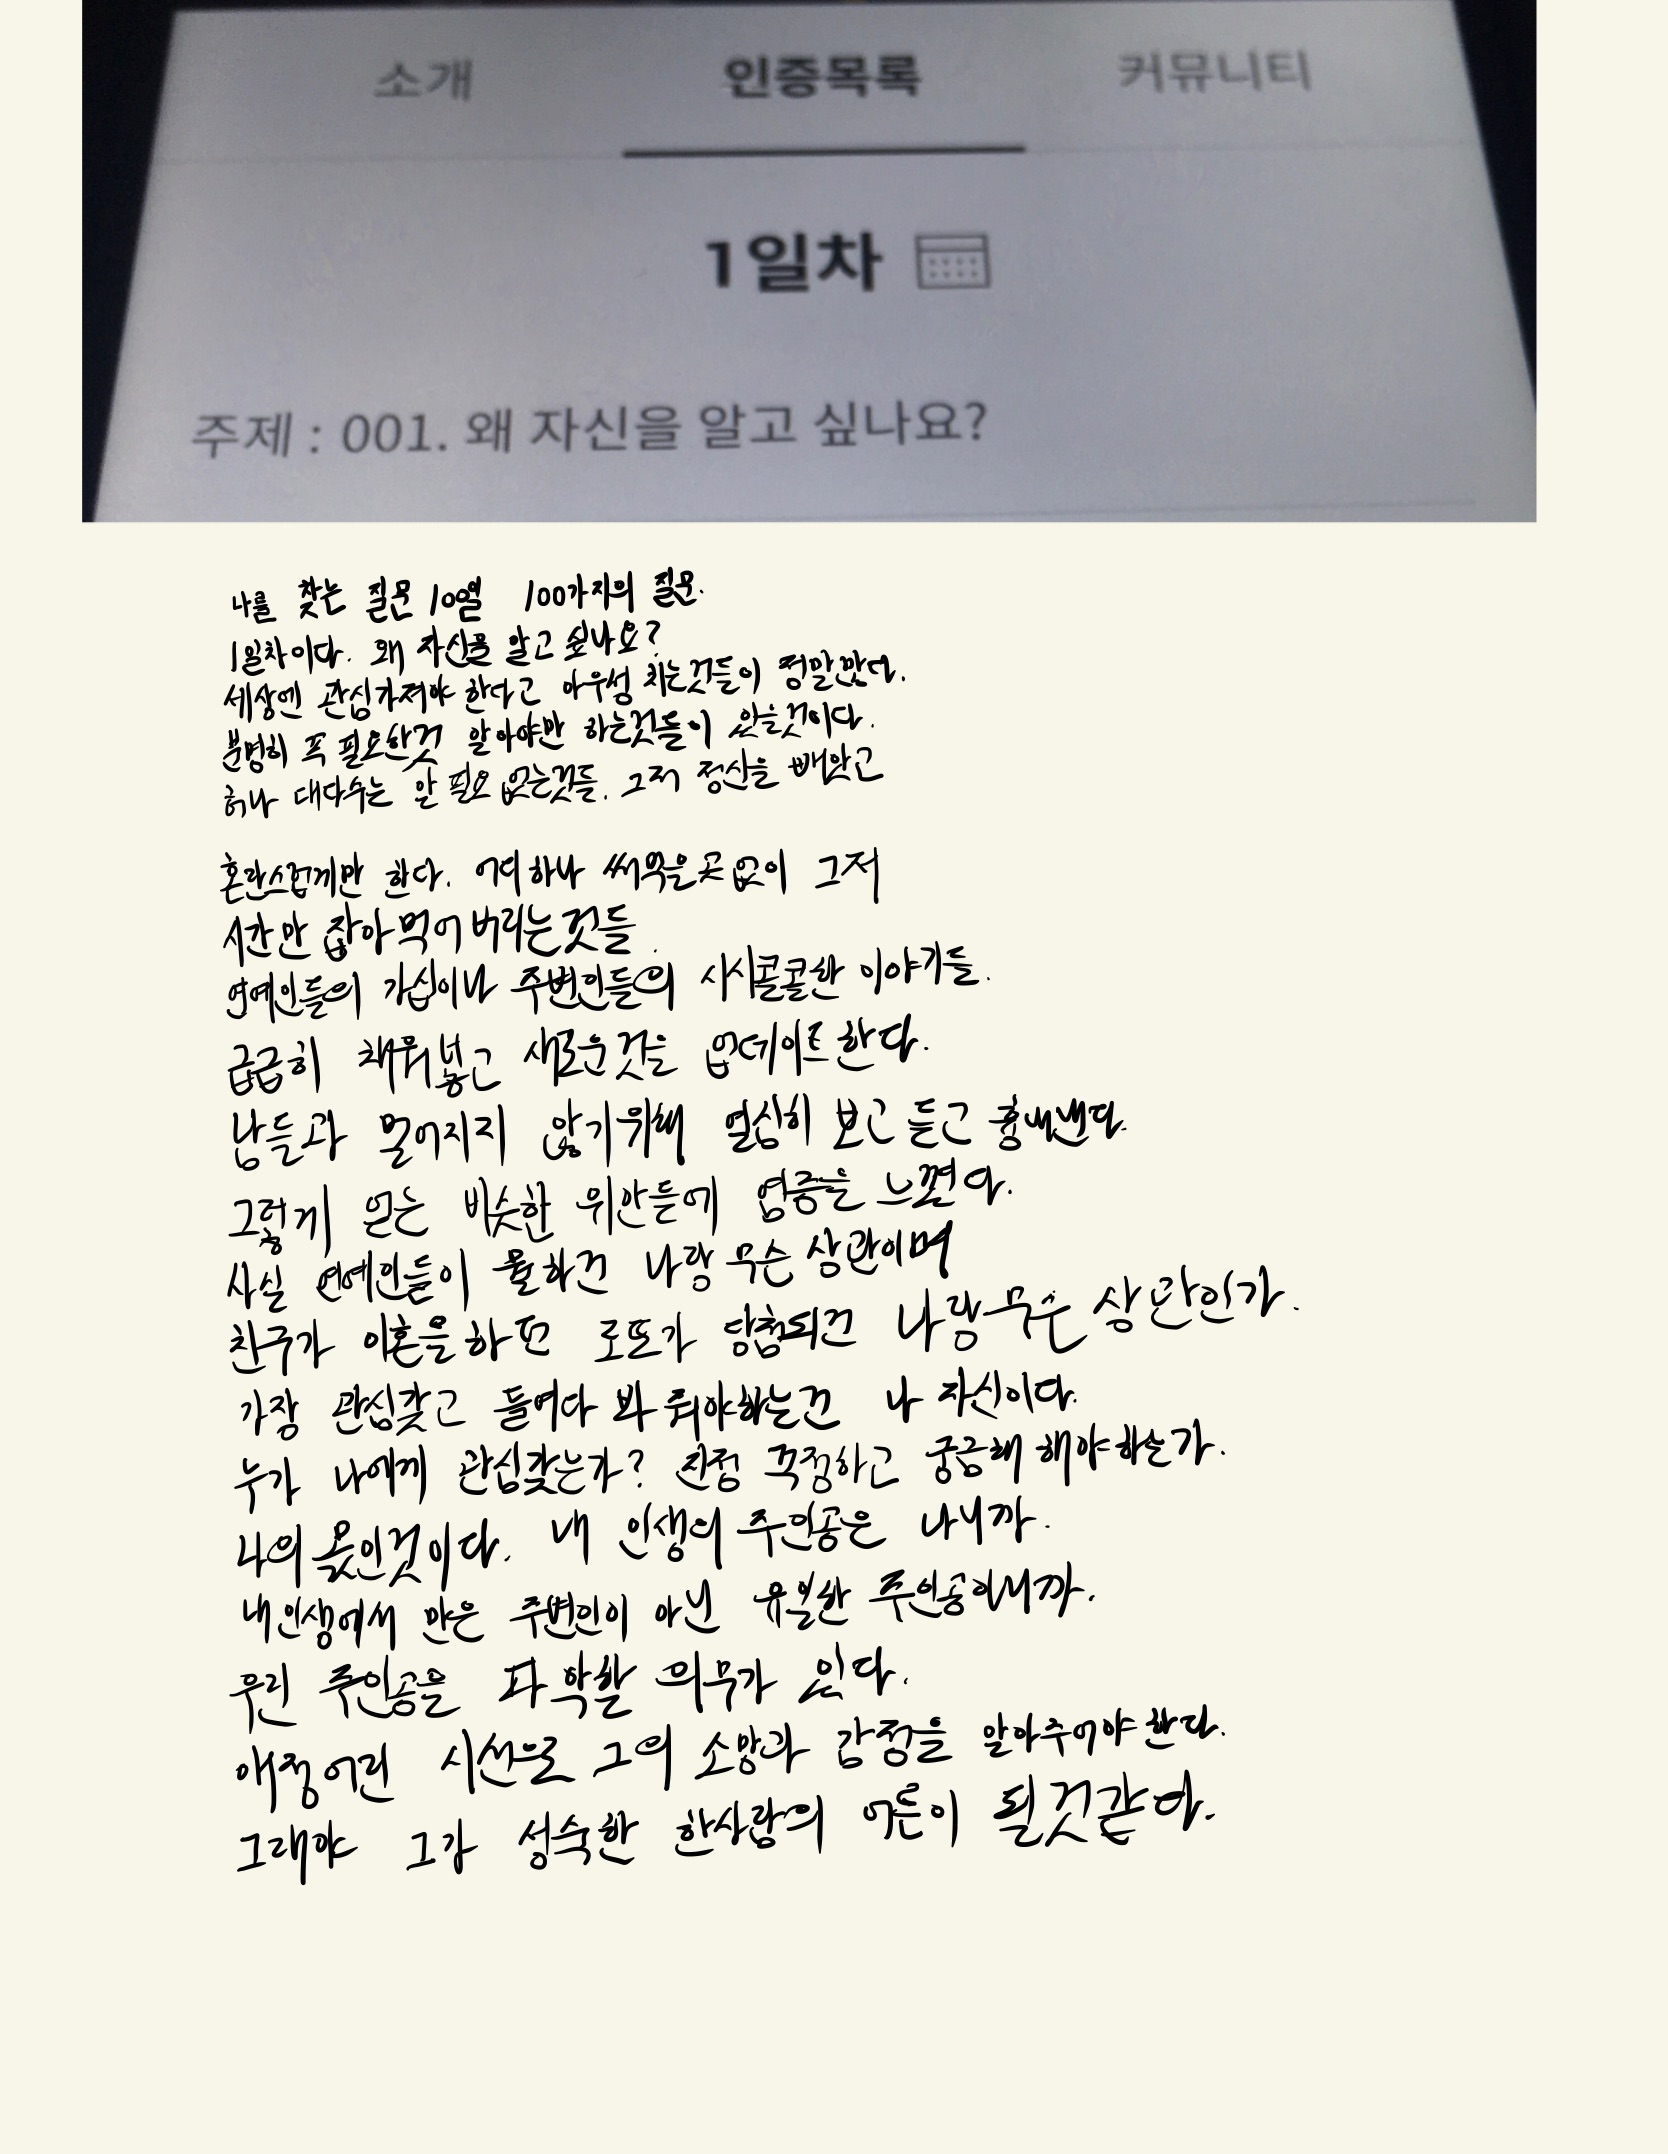 소개 인증목록 커뮤니티
1일차
주제 : 001. 왜 자신을 알고 싶나요?
나를 찾는 질문 100가지의 질문.
1일차이다. 왜 자신을 알고 싶나요?
세상엔 관심가져야 한다고 아우성 치는것들이 정말많다.
분명히 꼭 필요한것 알아야만 하는것들이 있을것이다.
허나 대다수는 알 필요 없는것들. 그저 정신을 빼앗고
혼란스럽게만 한다. 어디하나 써먹을곳 없이 그저
시간만 잡아먹어버리는것들.
연예인들의 가십이나 주변인들의 시시콜콜한 이야기들.
급급히 채워넣고 새로운것을 업데이트한다.
남들과 멀어지지 않기위해 열심히 보고 듣고 흉내낸다.
그렇게 얻는 비슷한 위안들에 염증을 느꼈다.
사실 연예인들이 뭘하건 나랑 무슨 상관이며
친구가 이혼을하던 로또가 당첨되건 나랑무슨 상관인가.
가장 관심갖고 들여다 봐 줘야하는건 나 자신이다.
누가 나에게 관심갖는가? 진정 걱정하고 궁금해 해야하는가.
나의 몫인것이다. 내 인생의 주인공은 나니까.
내인생에서 만은 주변인이 아닌 유일한 주인공이니까.
우리 주인공을 파악할 의무가 있다.
애정어린 시선으로 그의 소망과 감정을 알아주어야한다.
그래야 그가 성숙한 한사람의 어른이 될것같다.